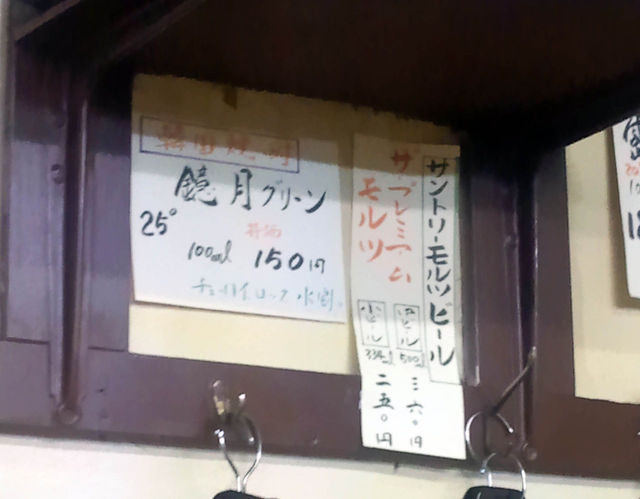 韓国焼酎
鏡月グリーン
25°
100ml 150円
チューハイ.ロック.水割.
サントリーモルツビール
ザ・プレミアム
モルツ
中ビール
500ml
三六〇円
小ビール
334ml
二五〇円